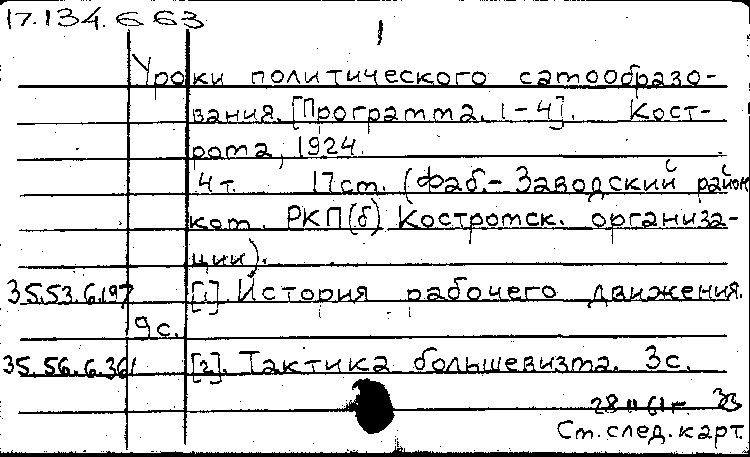 17.134.663
1
Уроки политического самообразо-
вания. [Программа. 1-4]. Кост-
рома, 1924.
4 т. 17 см. (Фаб.-Заводский район
ком. РКП(б) Костромск. организа-
ции).
35.53.6.197 [1]. История рабочего движения.
9 с.
35.56.6.361 [2]. Тактика большевизма. 3 с.
28 II 61 г.
См. след. карт.